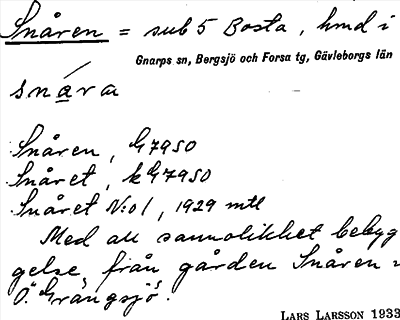 Snåren = sub 5 Bosta, hmd i
Gnarps sn, Bergsjö och Forsa tg, Gävleborgs län
snåra
Snåren, G7950
Snåret, kG7950
Snåret N:o 1, 1929 mtl
Med all sannolikhet bebyg
gelse från gården Snåren =
Ö. Grängsjö.
LARS LARSSON 1933